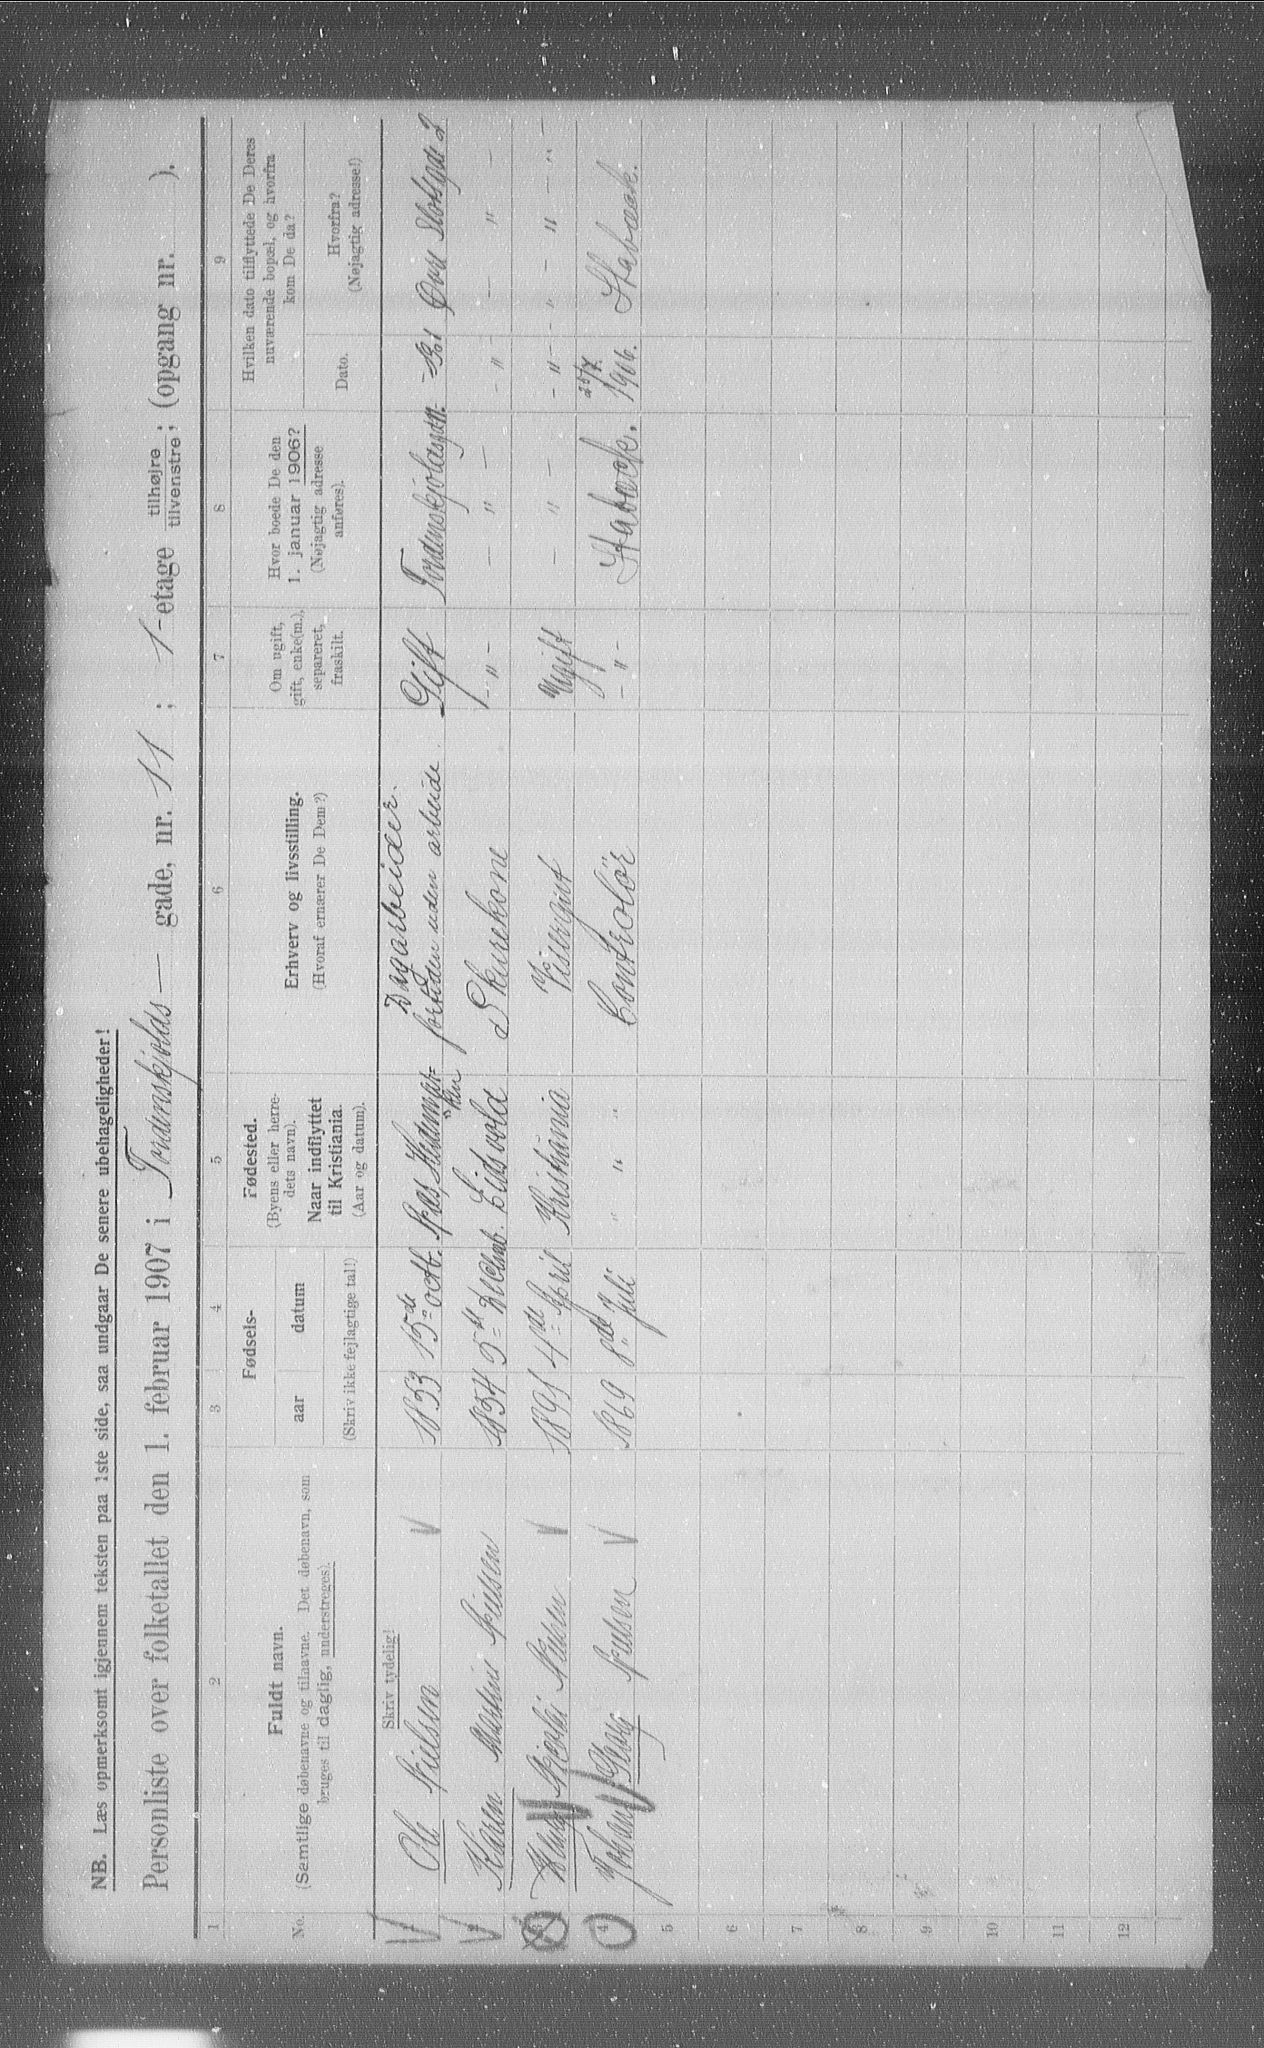 NB. Læs opmerksomt igjennem teksten paa 1ste side, saa undgaar De senere ubehageligheder!
Personliste over folketallet den 1. februar 1907 i Tordenskjolds — gade, nr. 11 ; 1 -etage tilhøjre / tilvenstre ; (opgang nr. ).
1 2 3 4 5 6 7 8 9
No.
Fuldt navn.
(Samtlige døbenavne og tilnavne. Det døbenavn, som
bruges til daglig, understreges).
Fødsels-
aar datum
(Skriv ikke fejlagtige tal!)
Fødested.
(Byens eller herre-
dets navn).
Naar indflyttet
til Kristiania.
(Aar og datum).
Erhverv og livsstilling.
(Hvoraf ernærer De Dem?)
Om ugift,
gift, enke(m.),
separeret,
fraskilt.
Hvor boede De den
1. januar 1906?
(Nøjagtig adresse
anføres).
Hvilken dato tilflyttede De Deres
nuværende bopæl, og hvorfra
kom De da?
Dato.
Hvorfra?
(Nøjagtig adresse!)
Skriv tydelig!
Ole Nielsen 1853 15de octb. Hedemar-ken Dagarbeider. fortiden uden arbeide. Gift Tordenskjolsgd 11. Øvre Slotsgde 2
Karen Martine Nielsen 1854 5te Decbmb. Eidsvold Skurekone - " - - " - - " - - " -
Nielsen 1891 4de April Kristiania Visergut Ugift - " - - " - - " - " -
4 Johan Georg Nielsen 1869 8de Juli " " " Controlör - " - Stabæck. 25/7 1906. Stabæck.
5
6
7
8
9
10
11
12